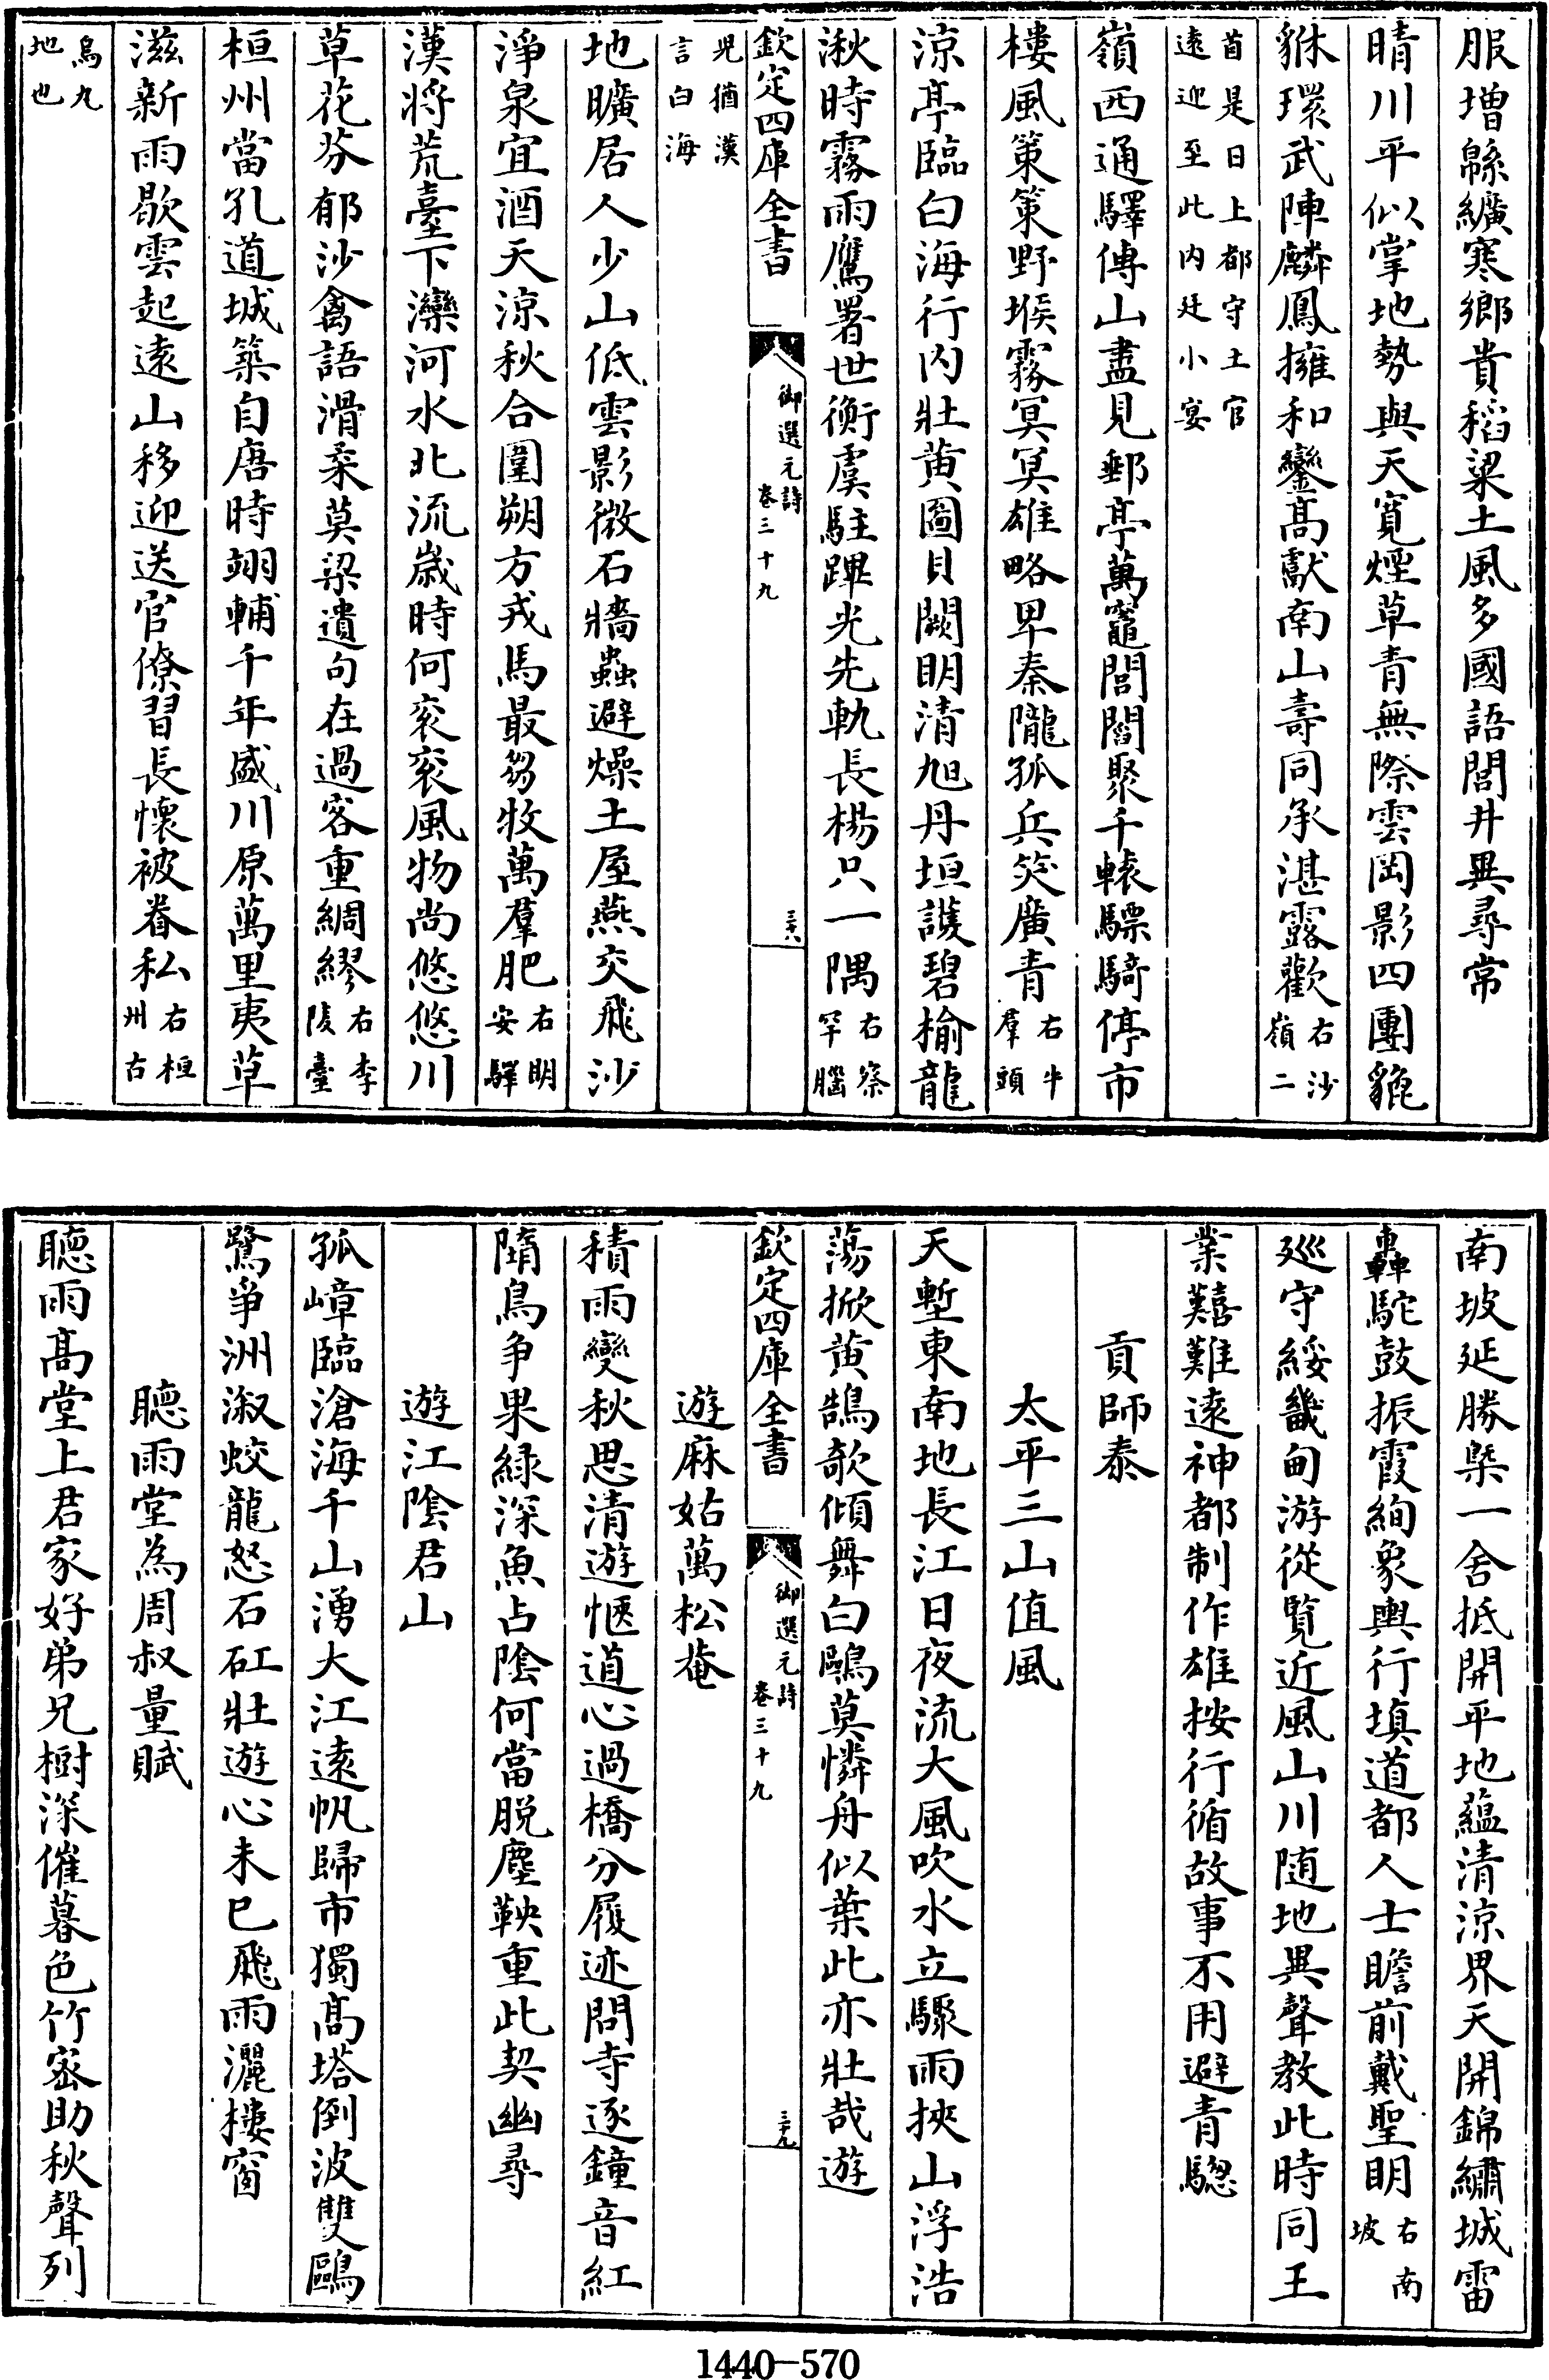 服増緜纊寒鄉貴稻粱土風多國語閭井異尋常
晴川平似掌地勢與天寛煙草青無際雲岡影四團貔
貅環武陣麟鳳擁和鑾髙獻南山壽同承湛露歡右沙嶺二
首是日上都守土官逺迎至此内廷小宴
嶺西通驛傳山盡見郵亭萬竈閭閻聚千轅驃騎停市
樓風策策野堠霧冥冥雄略卑秦隴孤兵笑廣青右牛羣頭
涼亭臨白海行内壯黄圖貝闕明清旭丹垣護碧榆龍
湫時霧雨鷹署世衡虞駐蹕光先軌長楊只一隅右察罕腦
兒猶漢言白海
欽定四庫全書
御選元詩
卷三十九
三十八
地曠居人少山低雲影微石牆蟲避燥土屋燕交飛沙
淨泉宜酒天涼秋合圍朔方戎馬最芻牧萬羣肥右明安驛
漢將荒臺下灤河水北流歲時何衮衮風物尚悠悠川
草花芬郁沙禽語滑柔莫梁遺句在過客重綢繆右李陵臺
桓州當孔道城築自唐時翊輔千年盛川原萬里夷草
滋新雨歇雲起逺山移迎送官僚習長懷被眷私右桓州古
烏丸地也
南坡延勝槩一舍抵開平地藴清涼界天開錦繡城雷
轟駝鼓振霞絢象輿行填道都人士瞻前戴聖明右南坡
廵守綏畿甸游從覽近風山川隨地異聲教此時同王
業囏難逺神都制作雄按行循故事不用避青驄
貢師泰
太平三山值風
天塹東南地長江日夜流大風吹水立驟雨挾山浮浩
蕩掀黄鵠欹傾舞白鷗莫憐舟似葉此亦壯哉遊
欽定四庫全書
御選元詩
卷三十九
三十九
遊麻姑萬松菴
積雨變秋思清遊愜道心過橋分履迹問寺逐鐘音紅
隋鳥爭果緑深魚占陰何當脱塵鞅重此契幽尋
遊江陰君山
孤嶂臨滄海千山湧大江逺帆歸市獨髙塔倒波雙鷗
鷺爭洲溆蛟龍怒石矼壯遊心未已飛雨灑樓窗
聽雨堂為周叔量賦
聽雨髙堂上君家好弟兄樹深催暮色竹宻助秋聲列
1440—570